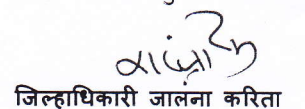 जिल्हाधिकारी जालना करिता